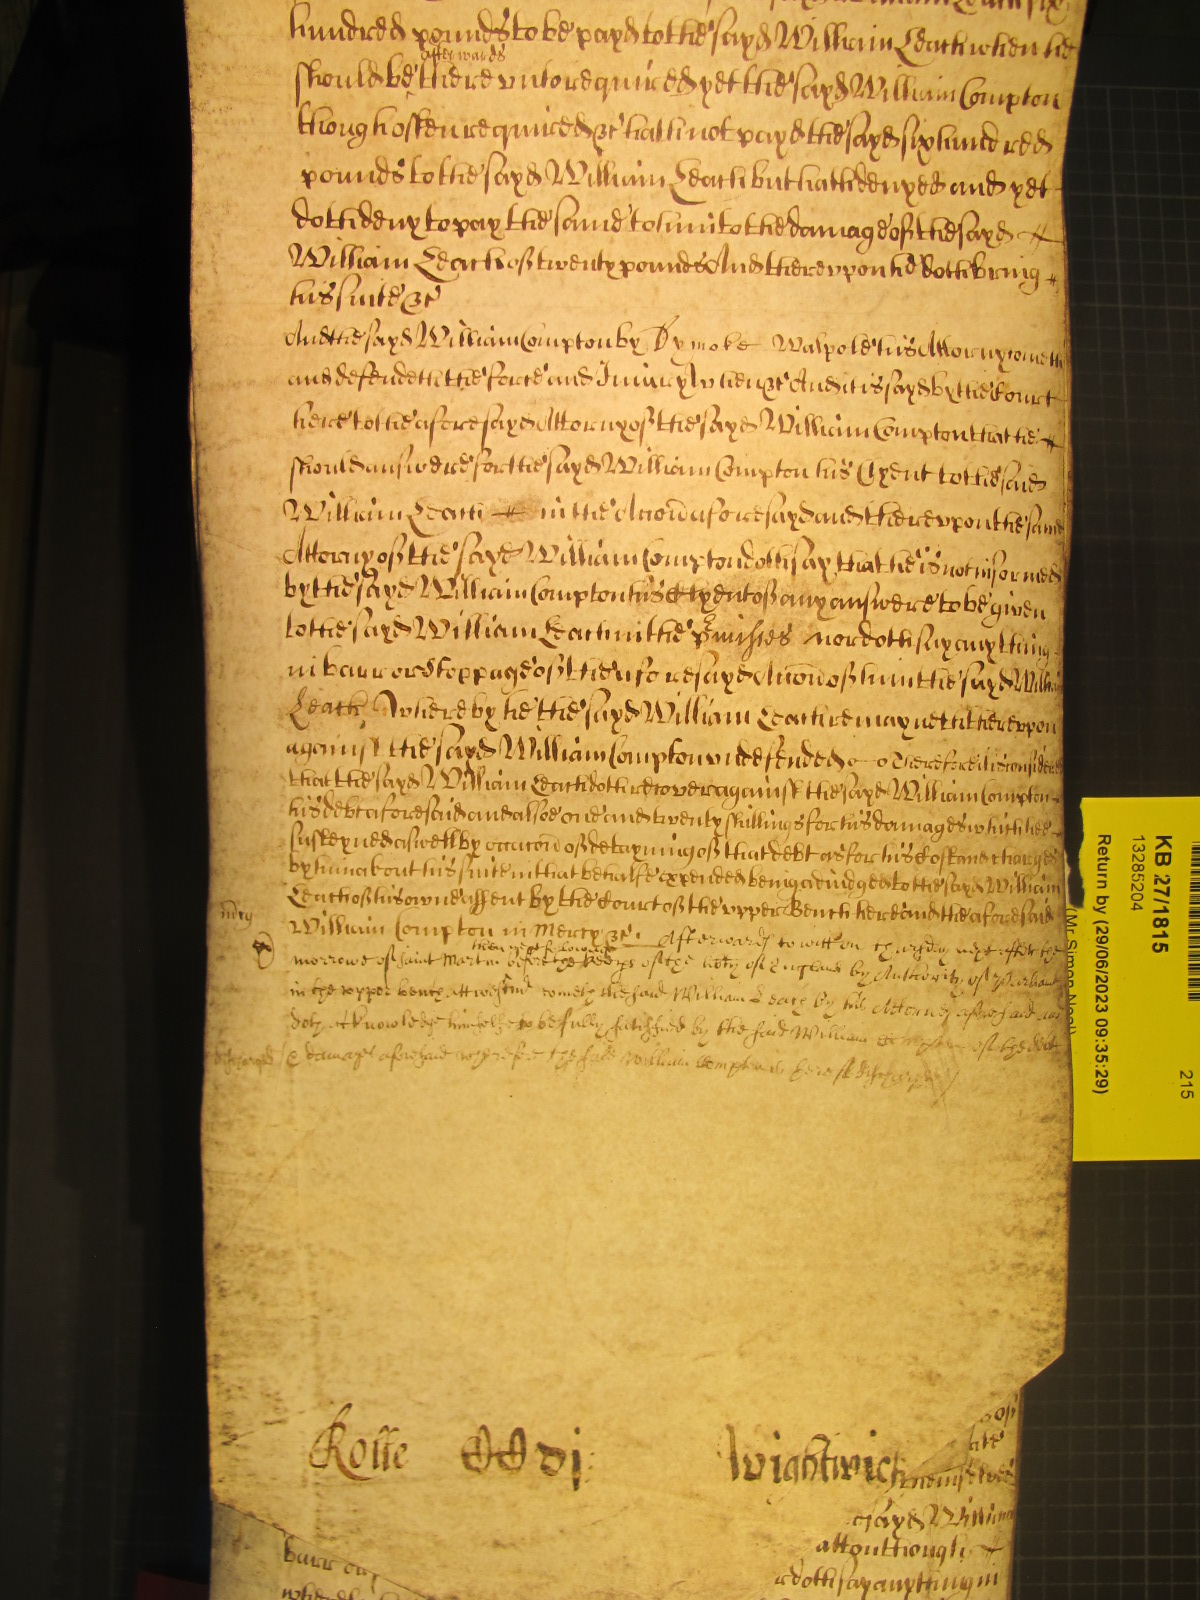 hundred pounds to be payd to the sayd William Leach when he
afterwards
should be there unto required yet the sayd William Compton
though often required &c hath not payd the sayd six hundred
pounds to the sayd William Leach but hath denyed and yet
doth deny to pay the same to him to the damage of the sayd
William Leach of twenty pounds And thereupon he doth bring
his suite &c
And the sayd William Compton by Dymoke Walpole his Attorny cometh
and defendeth the force and Iniury when &c And it is sayd by the Court
here to the aforesayd Attorny of the sayd William Compton that he
should answere for the sayd William Compton his Clyent to the said
William Leach in the Accon aforesayd and thereupon the same
Attorny of the sayd William Compton doth say that he is not informed
by the sayd William Compton his Clyent of any answere to be given
to the sayd William Leach in the p'misses nor doth say any thing
in barr or stoppage of the aforesayd Accon of him the sayd William
Leach Whereby he the sayd William Leach remayneth thereupon
against the sayd William Compton undefended Therefore it is considered
that the sayd William Leach doth recover against the sayd William Compton
his debt aforesaid and alsoe one and twenty shillings for his damages which he
susteyned aswell by occacon of detayning of that debt as for his Costs and charges
by him about his suite in that behalfe expended being adiudged to the sayd William
Leach of his owne assent by the Court of the upper Bench here and the aforesaid
William Compton in Mercy &c. Afterwards to witt on thursday next after the
then next followinge
morrowe of saint Martin before the keeps of the lib'ty of England by Authority of Parliamt
in the upper bench att westm' cometh the said William Leach by his Attorney aforesaid and
doth acknowledge himselfe to be fully satisfied by the said William Compton of the debt
& damags aforesaid therefore the said William Compton is thereof discharged
m'cy
Rolle
Wightwick
KB 27/1815
13285204
215
Return by (29/06/2023 09:35:29)
(Mr Simon Neal)
sayd William
att though
r doth say any thing in
barr or